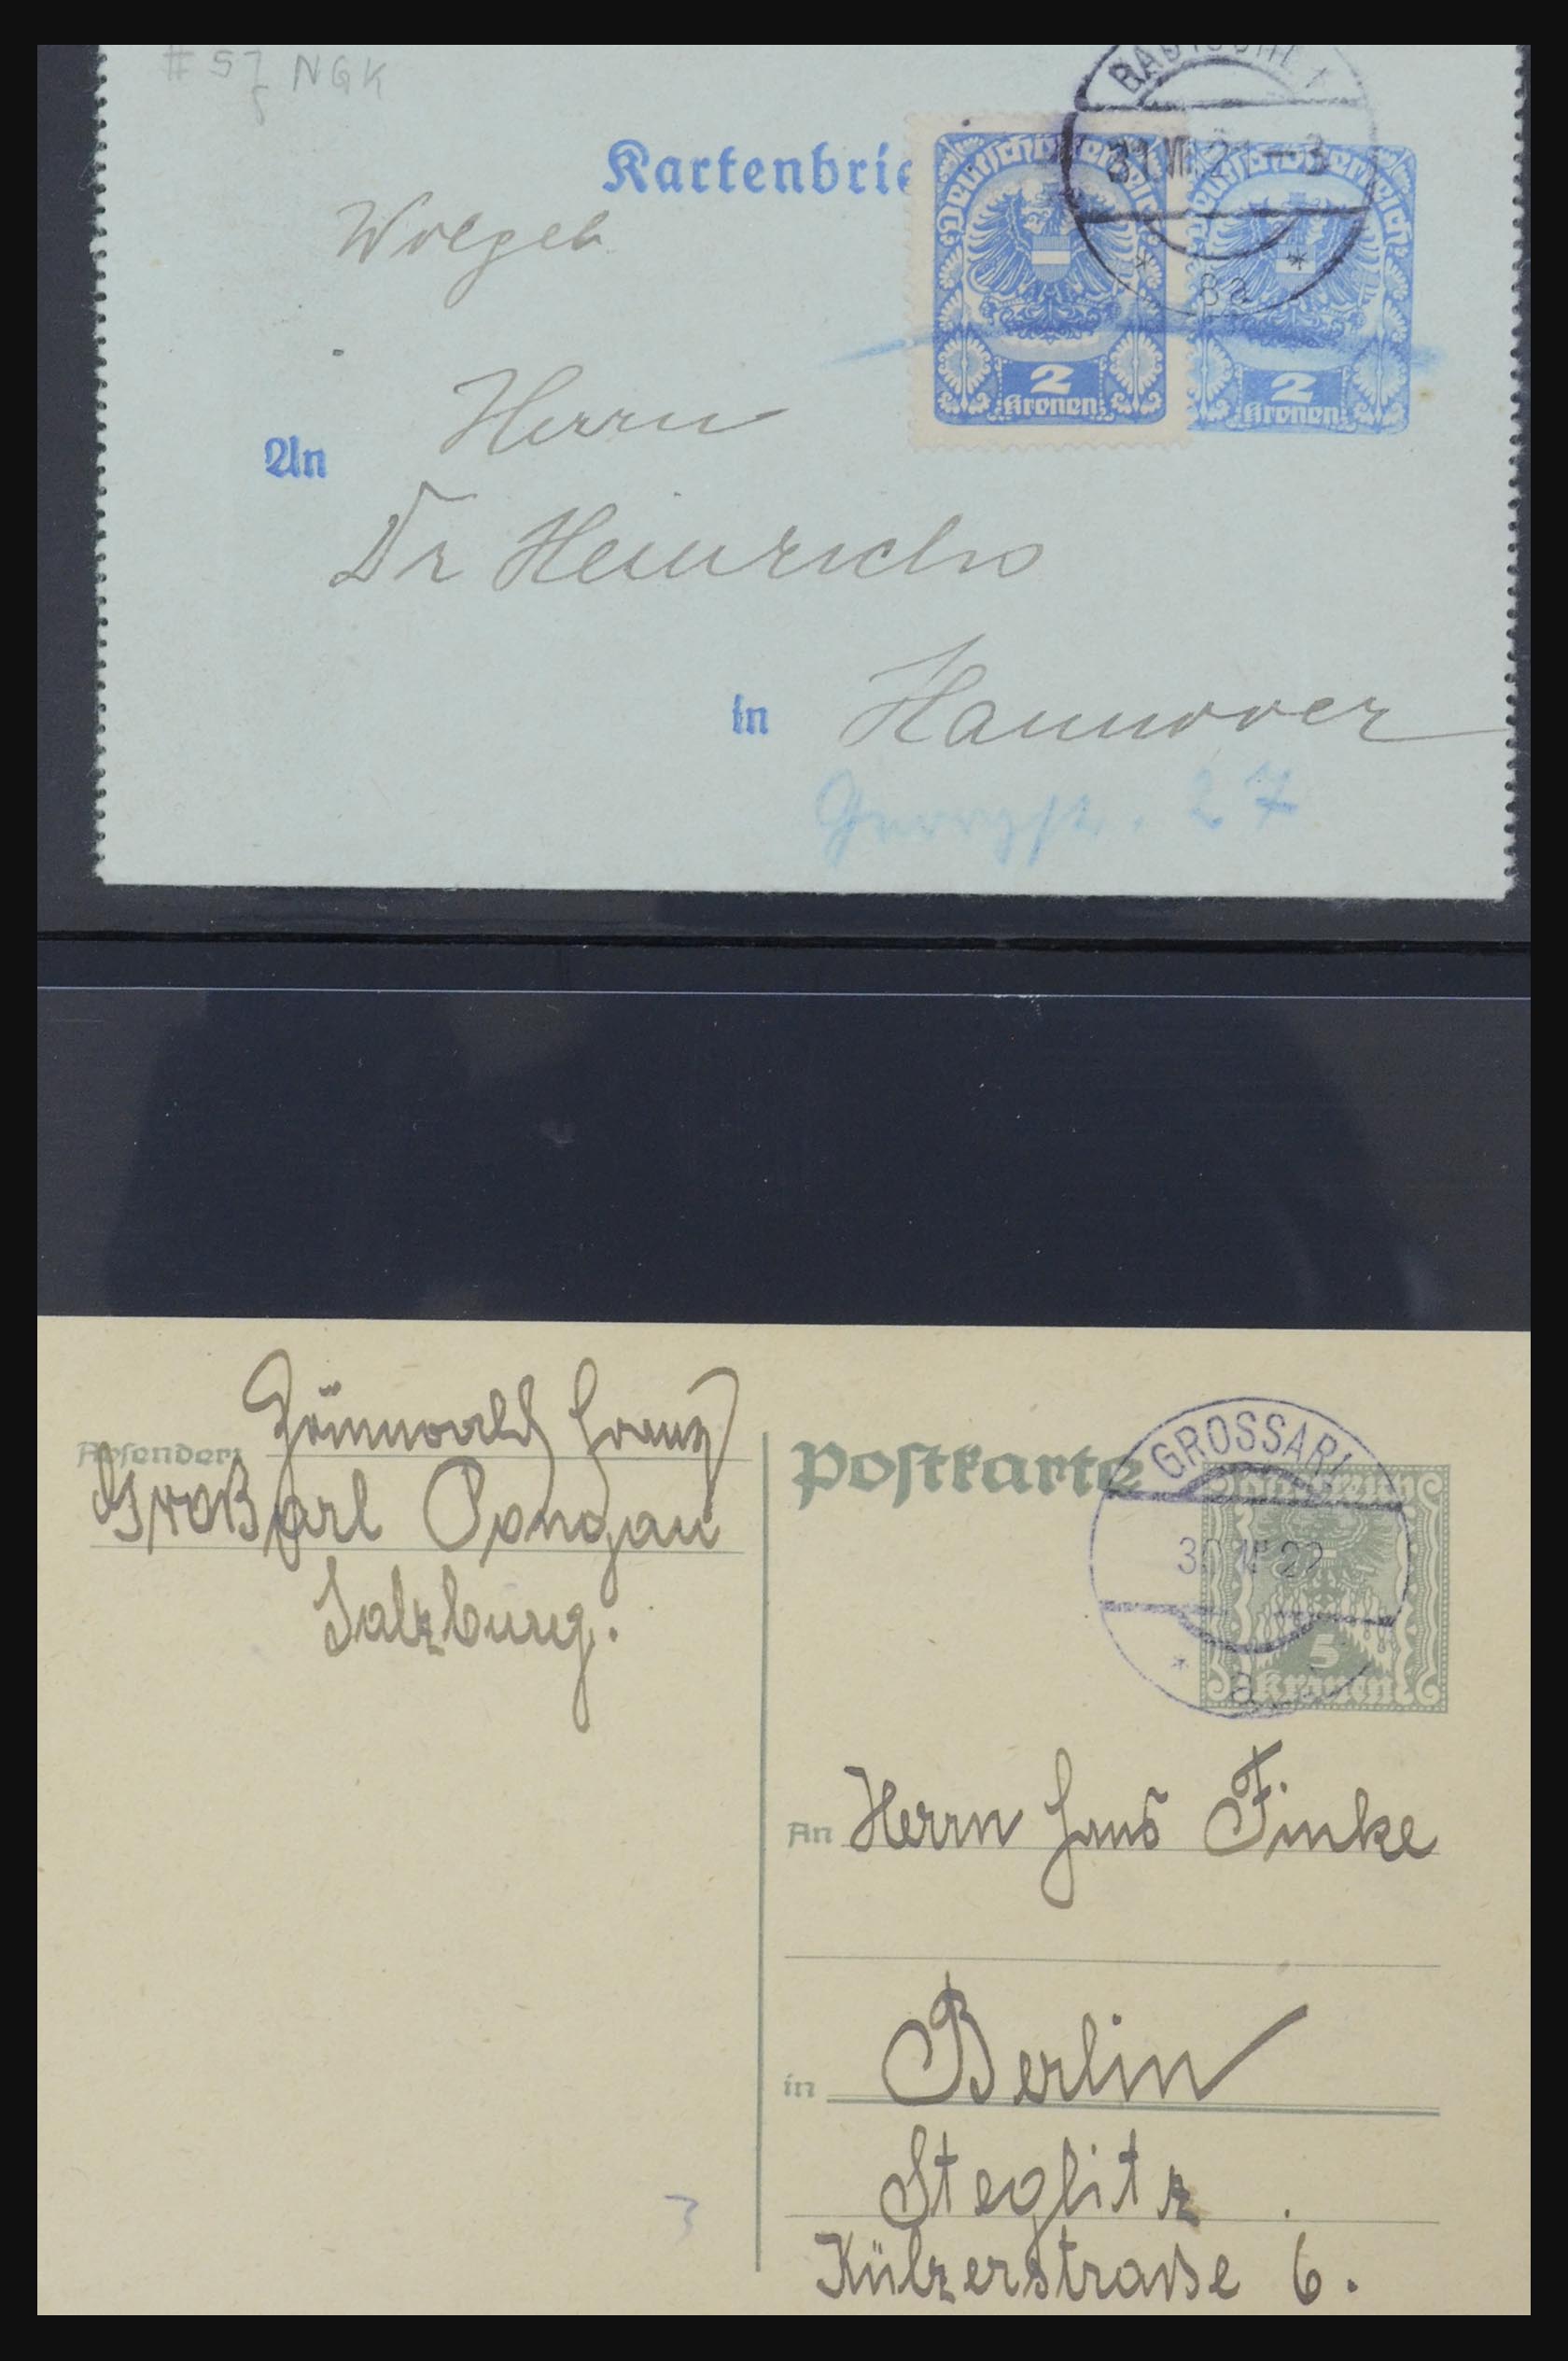 # 57 NGK
BAD ISCHL 1
Kartenbrie
31.VII.21-3
Deutschösterreich
Deutschösterreich
Wolgeb
* 8a *
2
Kronen
2
Kronen
Herrn
An
Dr Heinrichs
in Hannover
Georgstr. 27
Grünwald Franz
Absender:
Großarl Pongau
Salzburg.
Postkarte
GROSSARL
Österreich
22
* a
5
Kronen
An Herrn Hans Finke
in Berlin
Steglitz
Külzerstraße 6.
3